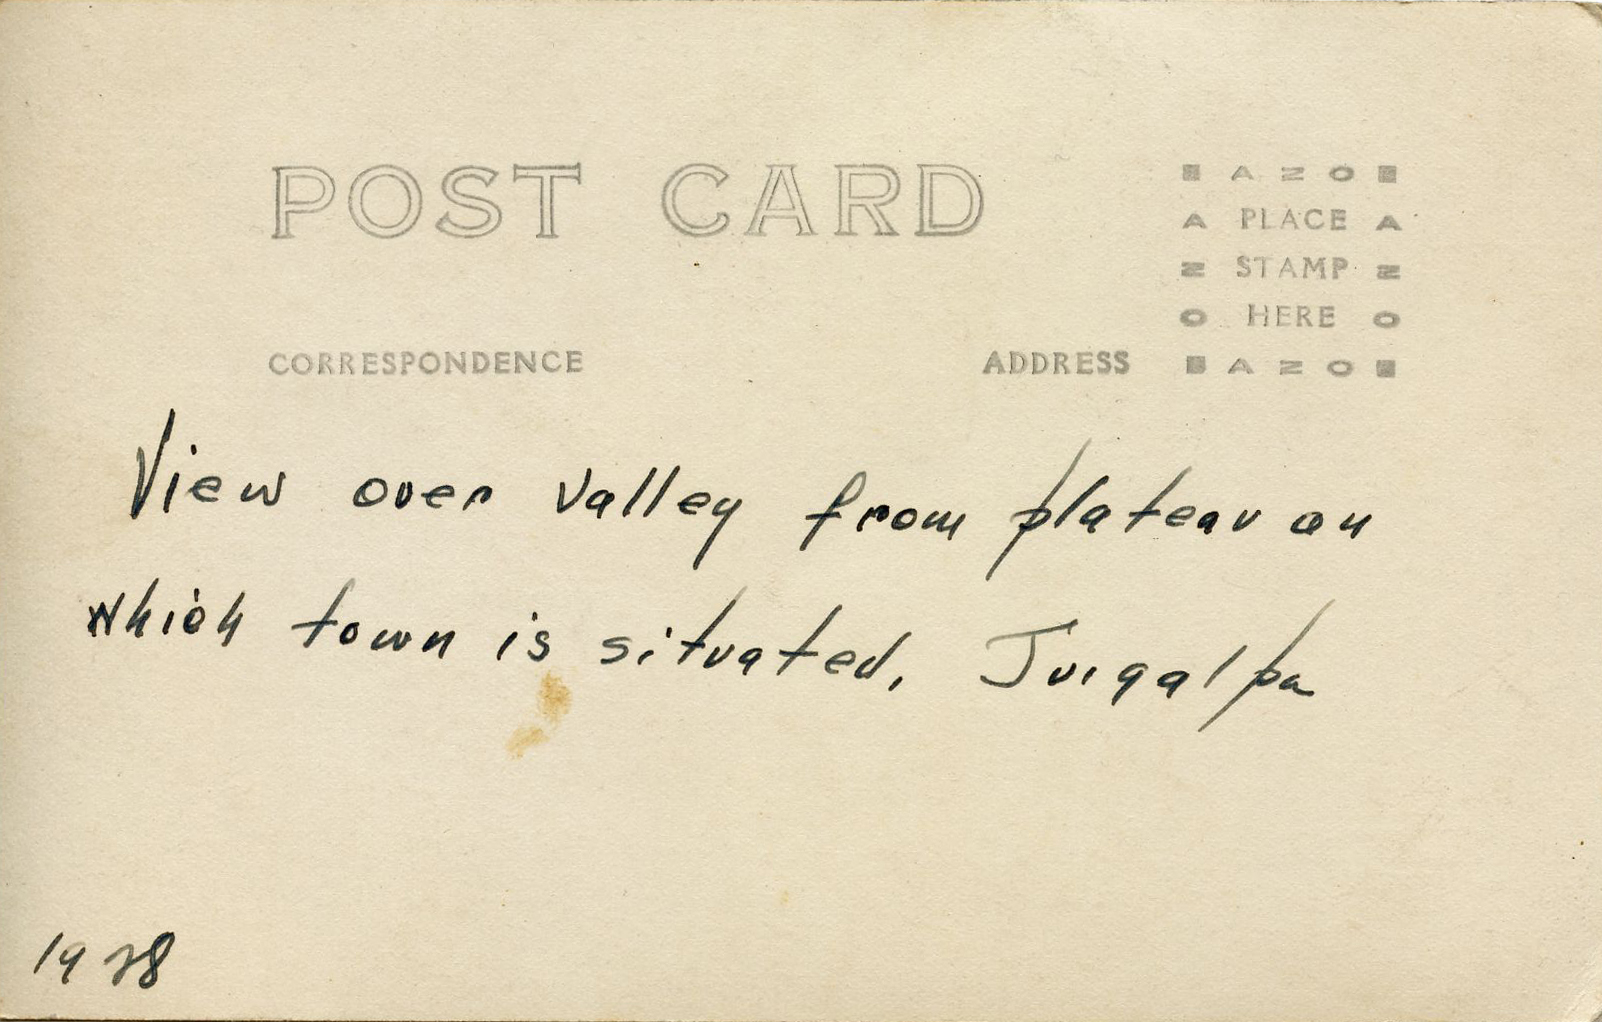 POST CARD
AZO
A PLACE A
Z STAMP Z
O HERE O
AZO
CORRESPONDENCE ADDRESS
View over valley from plateau on
which town is situated, Juigalpa
1928